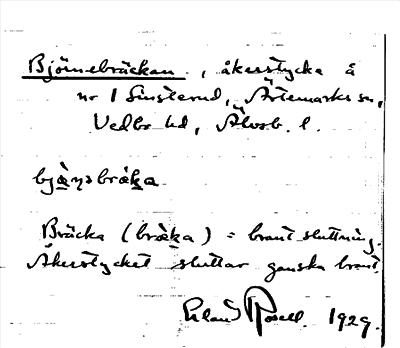 Björnebräckan, åkerstycke å
nr 1 Linsterud, Ärtemarks sn,
Vedbo hd, Älvsb. l.
Bräcka (bräka) = brant sluttning.
Åkerstycket sluttar ganska brant.
Erland Rosell. 1929.